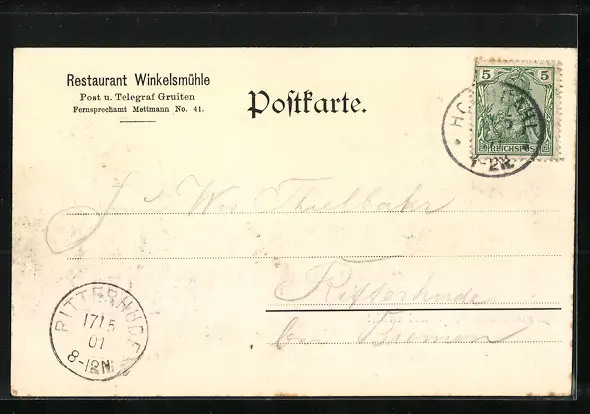 Restaurant Winkelsmühle
Post u. Telegraf Gruiten
Fernsprechamt Mettmann No. 41.
Postkarte.
5 5
REICHSPOST
Ritterhude
bei Bremen
RITTERHUDE
17/5
01
8-12N